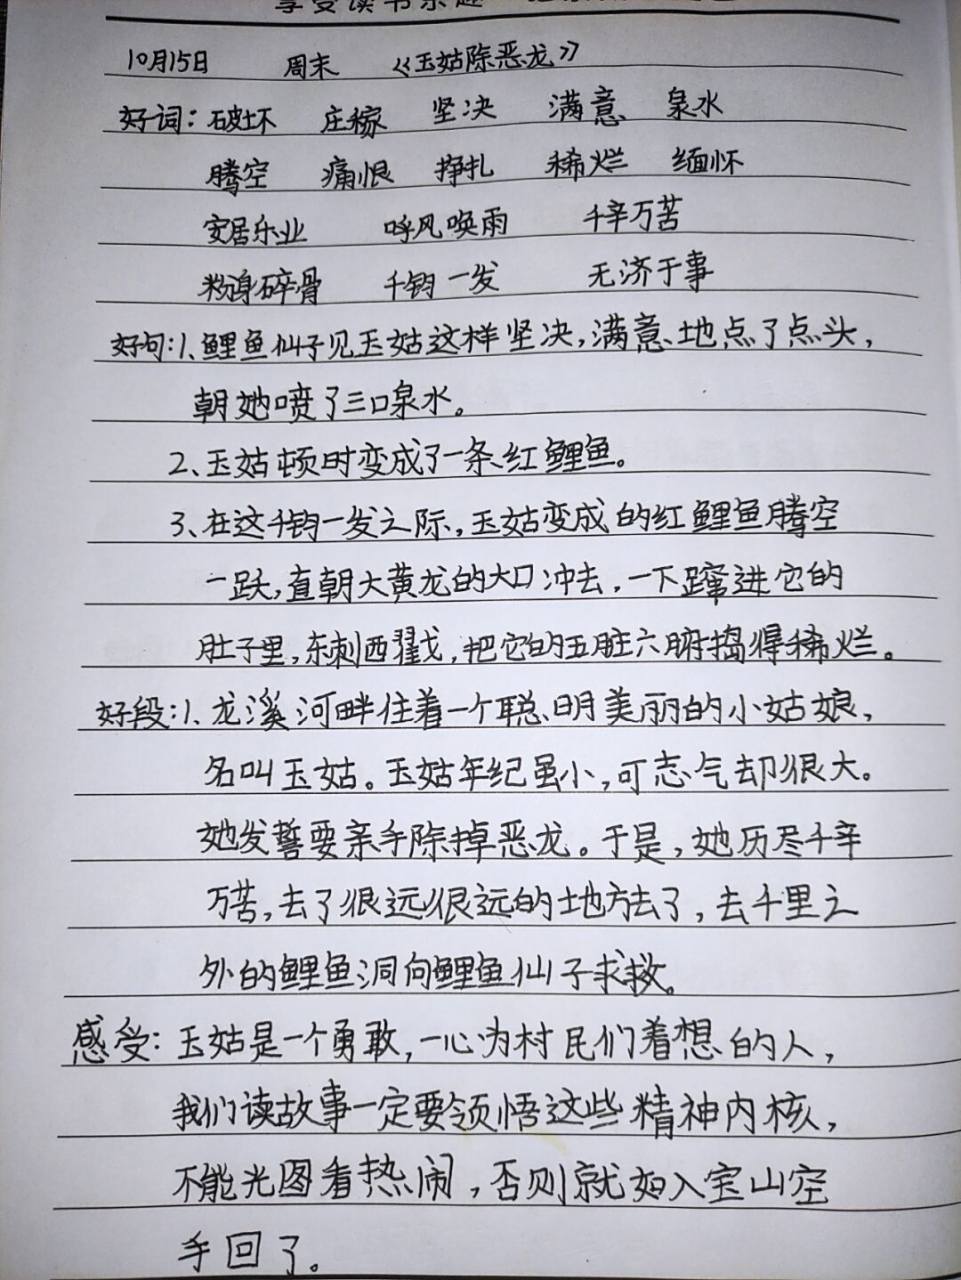 享受读书乐趣
10月15日 周末 《玉姑除恶龙》
好词：破坏 庄稼 坚决 满意 泉水
腾空 痛恨 挣扎 稀烂 缅怀
安居乐业 呼风唤雨 千辛万苦
粉身碎骨 千钧一发 无济于事
好句：1、鲤鱼仙子见玉姑这样坚决，满意地点了点头，
朝她喷了三口泉水。
2、玉姑顿时变成了一条红鲤鱼。
3、在这千钧一发之际，玉姑变成的红鲤鱼腾空
一跃，直朝大黄龙的大口冲去，一下蹿进它的
肚子里，东刺西戳，把它的五脏六腑捣得稀烂。
好段：1、龙溪河畔住着一个聪明美丽的小姑娘，
名叫玉姑。玉姑年纪虽小，可志气却很大。
她发誓要亲手除掉恶龙。于是，她历尽千辛
万苦，去了很远很远的地方去了，去千里之
外的鲤鱼洞向鲤鱼仙子求救。
感受：玉姑是一个勇敢，一心为村民们着想的人，
我们读故事一定要领悟这些精神内核，
不能光图看热闹，否则就如入宝山空
手回了。